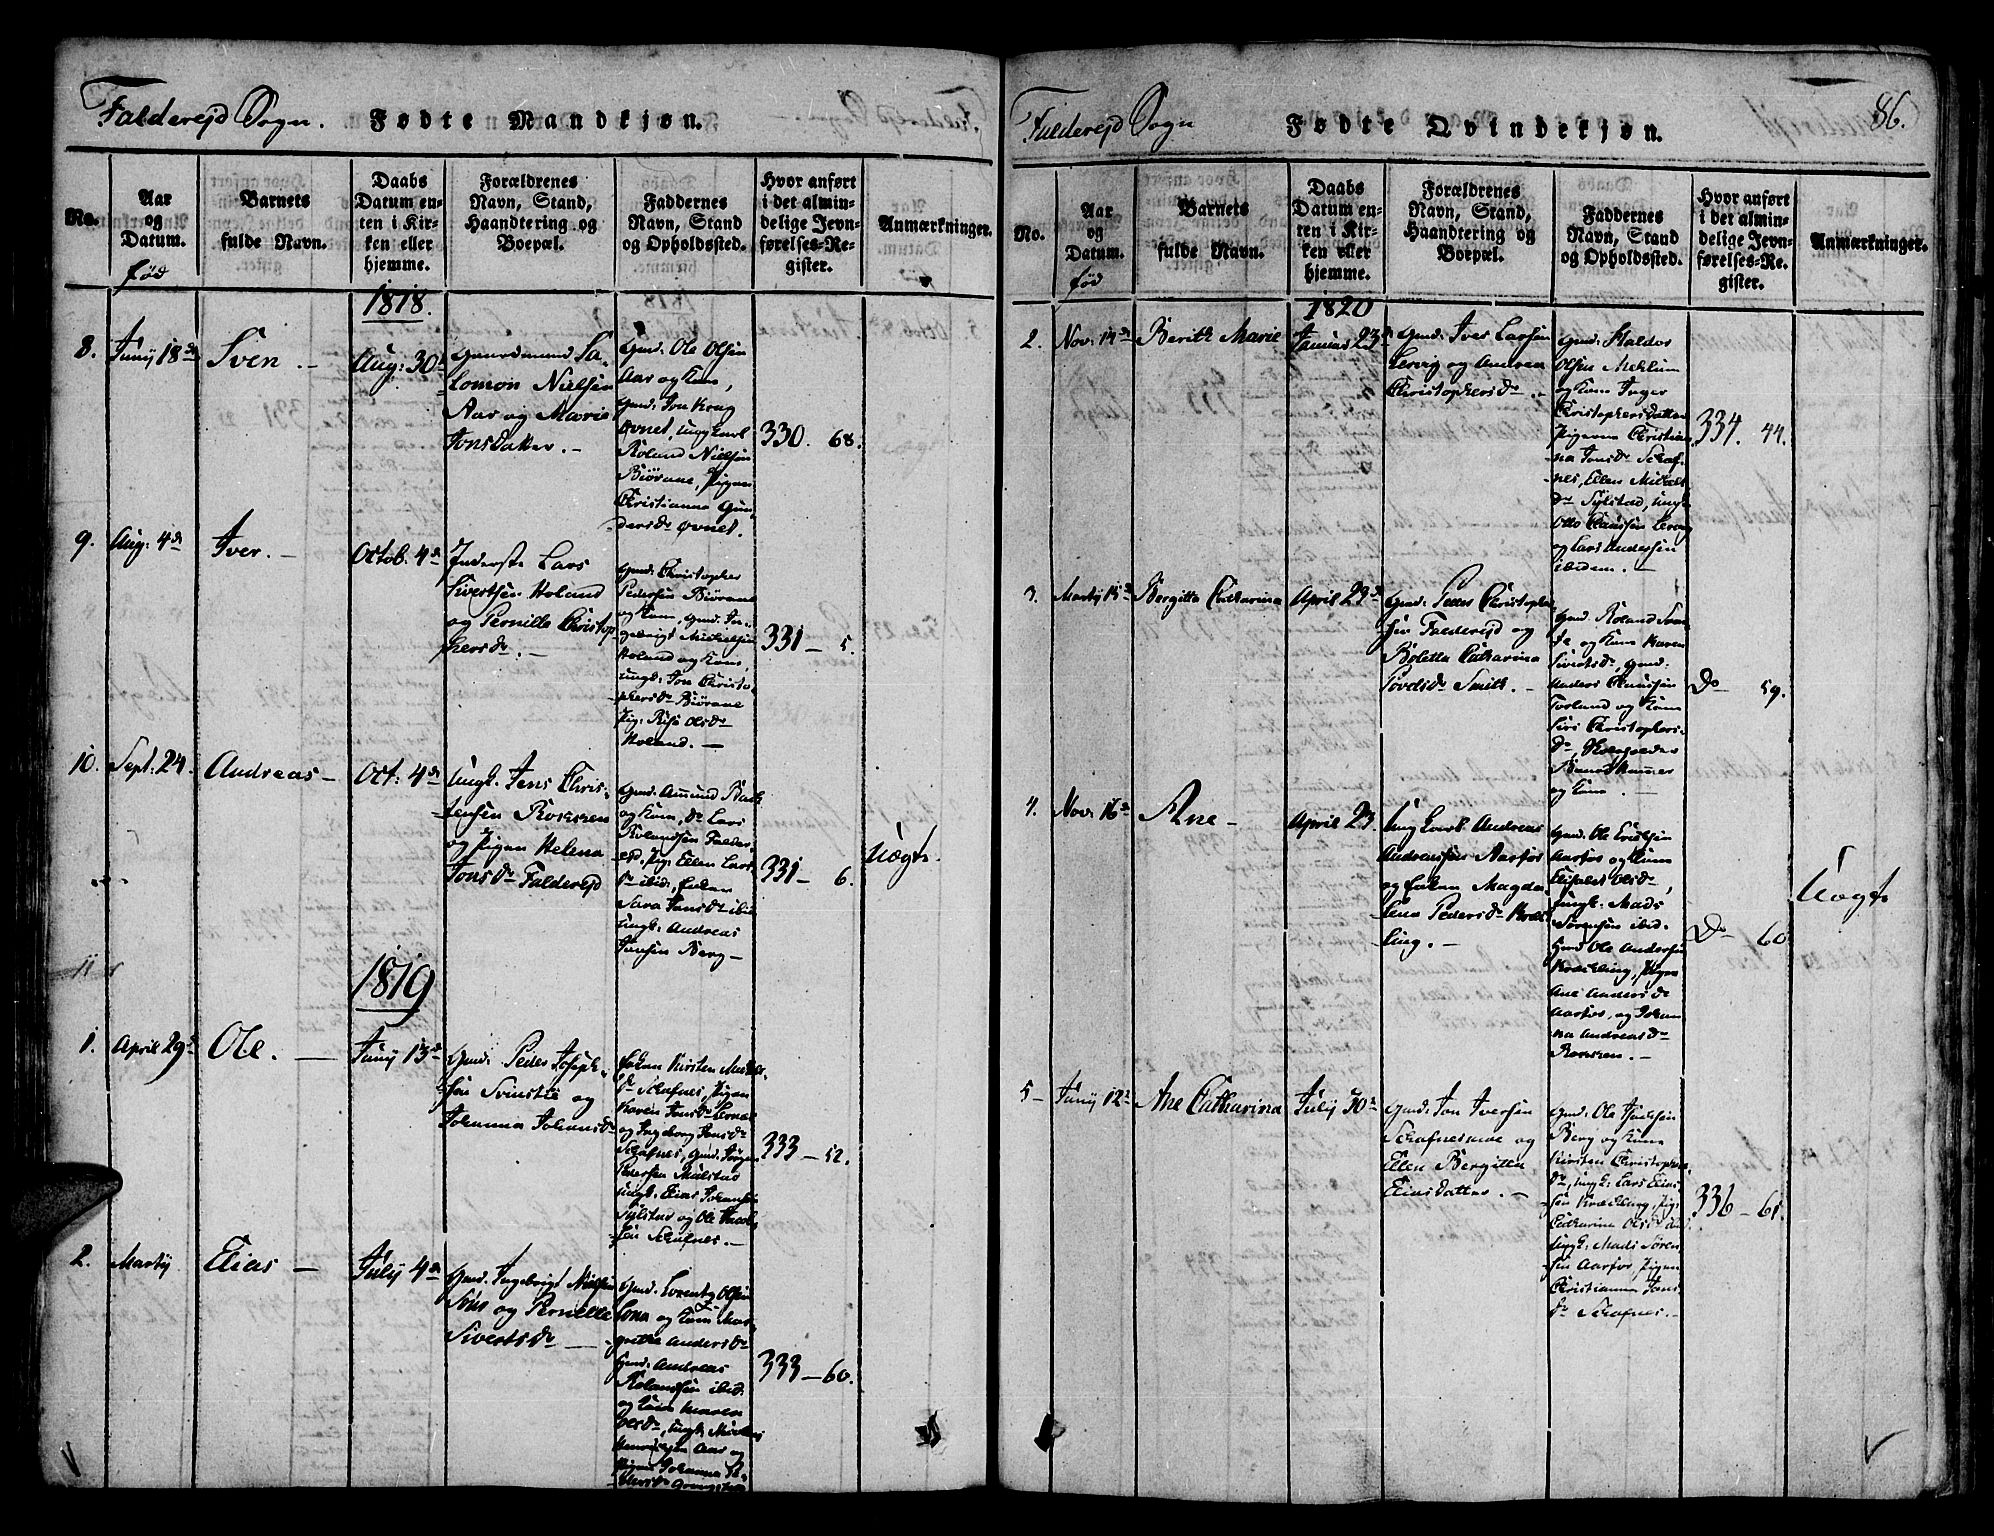 Falderejd Sogn. Fødte Mandkjøn.
No.
Aar
og
Datum.
fød
Barnets
fulde Navn.
Daabs
Datum en-
ten i Kir-
ken eller
hjemme.
Forældrenes
Navn, Stand,
Haandtering og
Boepæl.
Faddernes
Navn, Stand
og Opholdssted.
Hvor anført
i det almin-
delige Jevn-
førelses-Re-
gister.
Anmærkninger.
1818.
8. Juny 18de Sven. — Aug: 30te
Gaardmand Sa-
lomon Nielsen
Aar og Maria
Jonsdatter. —
Gmd: Ole Olsen
Aar og Kone,
Gmd: Jon Krag
Øvnet, Ungkarl
Roland Nielsen
Biørane, Pigen
Christianna Gun-
dersdr Øvnet.
330. 68.
9. Aug: 4de Iver. — Octob. 4de
Inderste Lars
Sivertsen Holand
og Pernille Christop-
hersdr. —
Gmd: Christopher
Pedersen Biørane
og Kone, Gmd: In-
gebrigt Mickelsen
Holand og Kone,
Ungk: Jon Christo-
phersdr Biørane
Pig: Olsdr
Holand. —
331 — 5.
10. Sept: 24. Andreas — Oct: 4de
Ungk. Jens Chris-
tensen
og Pigen Helena
Jonsdr Falderejd
Gmd: Amund
og Kone, dr Lars
Rolandsen Falder-
ejd. Pig: Ellen Lars-
dr ibid,
Sara Jonsdr ibid
Ungk: Andreas
Jonsen Berg —
331 — 6.
Uægte.
11
1819
1. April 29de Ole. — Juny 13de
Gmd: Peder Joseph-
sen Svinstie og
Johanna Johansdr
Kirsten
dr Schafnes, Pigen
Karen Jonsdr
og Ingeborg Jonsdr
Schafnes, Gmd: Jørgen
Pedersen Mælstad
Ungk: Elias Johansen
Sylstad og Ole
sen Schafnes. —
333 — 52.
2. Marty Elias — July 4de
Gmd: Ingebrigt Nielsen
og Pernille
Sivertsdr —
Gmd: Lorents Olsen
og Kone Mar-
grethe Andersdr
Gmd: Andreas
Rolandsen ibid:
og Kone Maren
Ungk:
Aar og
Pigen Johanna
333 — 60.
Falderejd Sogn Fødte Qvindekjøn. 86.
No.
Aar
og
Datum.
fød
Barnets
fulde Navn.
Daabs
Datum en-
ten i Kir-
ken eller
hjemme.
Forældrenes
Navn, Stand,
Haandtering og
Boepæl.
Faddernes
Navn, Stand
og Opholdssted.
Hvor anført
i det almin-
delige Jevn-
førelses-Re-
gister.
Anmærkninger.
1820
2. Nov. 14de Berith Marie Januar 23de
Gmd: Iver Larsen
Lervig og Andrea
Christophersdr. —
Gmd: Haldor
Olsen Meklum
og Kone Inger
Christophersdatter
Pigerne Christian-
na Jonsdr Schaf-
nes, Ellen Mickels-
dr Sylstad, Ungk:
Otto Clausen Lervig
og Lars Andersen
ibidem. —
334. 44.
3. Marty 15de Bergitta Catharina April 23de
Gmd: Peder Christopher-
sen Falderejd og
Boletta Catharina
Povelsdr Smith. —
Gmd: Roland
og Kone Karen
Sivertsdr, Gmd:
Anders Clausen
Torland og Kone
Siri Christophers-
dr,
og Kone. —
Do 59.
4. Nov. 16de Ane — April 23.
Ung Karl Andreas
Andreassen Aarfor
og Magda-
lena Pedersdr Kræk-
ling. —
Gmd: Ole Ericksen
Aarfor og Kone
Elisabet Olsdr,
Ungk: Mads
Sørensen ibid.
Gmd Ole Andersen
Krækling, Pigen
Ane Andersdr
Aarfor, og Johan-
na Andreasdr
Do 60
Uægte
5 — Juny 12te Ane Catharina July 30te
Gmd: Jon Iversen
Schafnes og
Ellen Bergitta
Eliasdatter. —
Gmd: Ole
Berg og Kone
Kirsten Christophers-
dr, Ungk: Lars Elias-
sen Krækling, Pig:
Catharina Olsdr
Ungk: Mads Søren-
sen Aarfor, Pigen
Christianna Jons-
dr Schafnes. —
336 — 61.